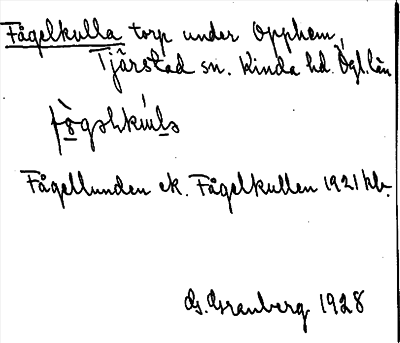 Fågelkulla torp under Opphem,
Tjärstad sn. Kinda hd. Ögl. län
Fågellunden ek. Fågelkullen 1921 kb.
G. Granberg 1928